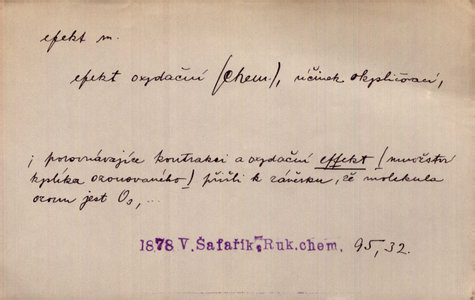 efekt m.
efekt oxydační (chem.), účinek okysličovací,
; porovnávajíce kontrakci a oxydační effekt (množství
kyslíka ozonovaného) přišli k závěrku, že molekula
ozonu jest O₃, ...
1878 V. Šafařík, Ruk. chem. 95, 32.